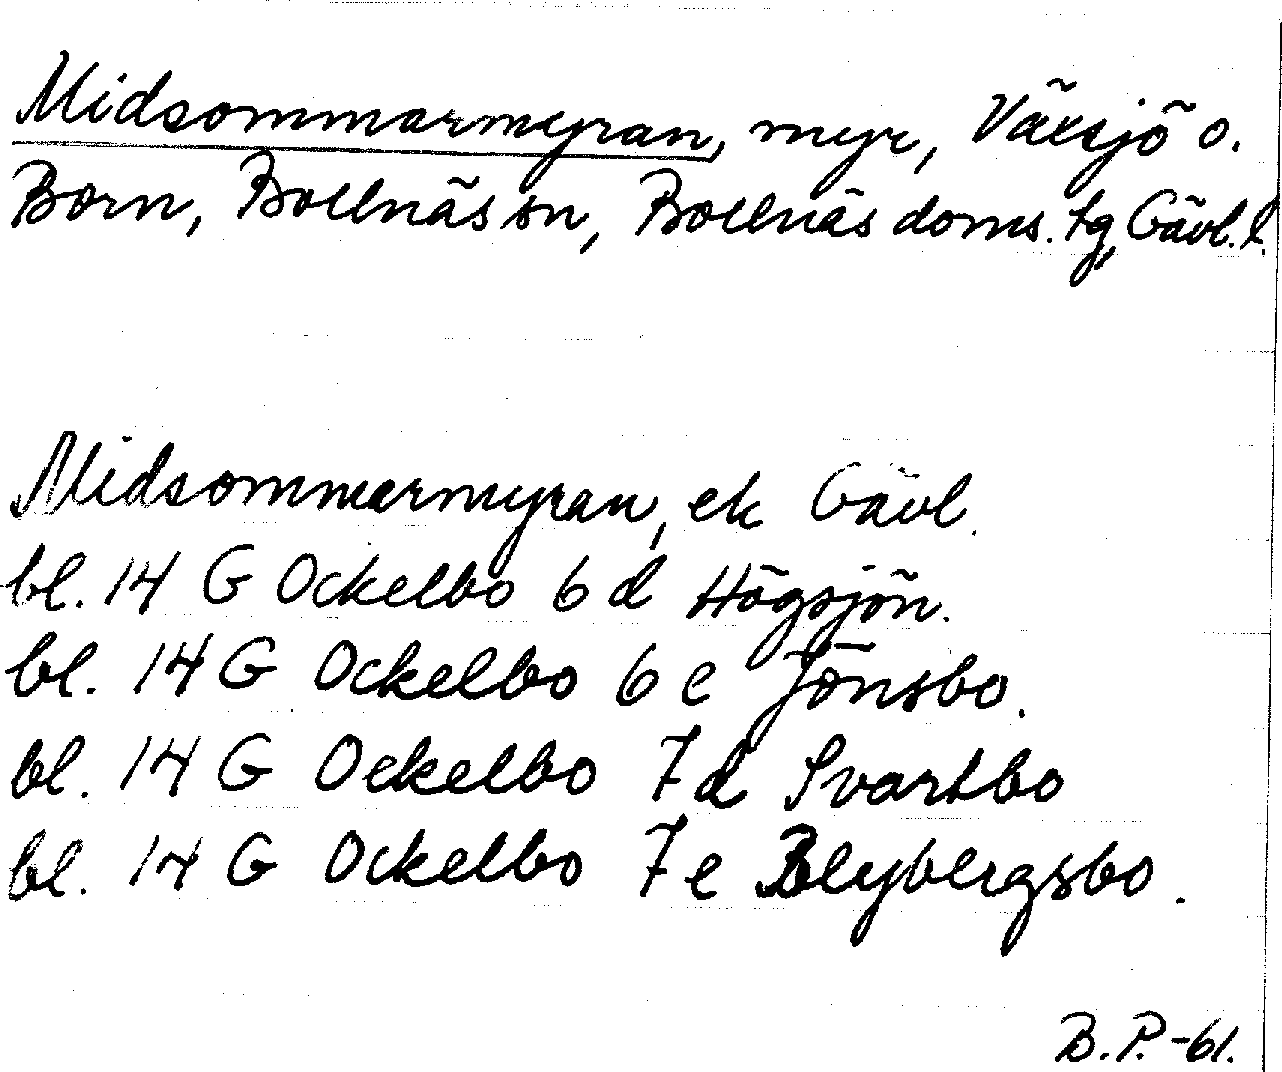 Midsommarmyran, myr, Växsjö o.
Born, Bollnäs sn, Bollnäs doms. tg, Gävl. l.
Midsommarmyran, ek Gävl.
bl. 14 G Ockelbo 6 d Högsjön.
bl. 14 G Ockelbo 6 e Jönsbo.
bl. 14 G Ockelbo 7 d Svartbo
bl. 14 G Ockelbo 7 e Blybergsbo.
B.P. -61.